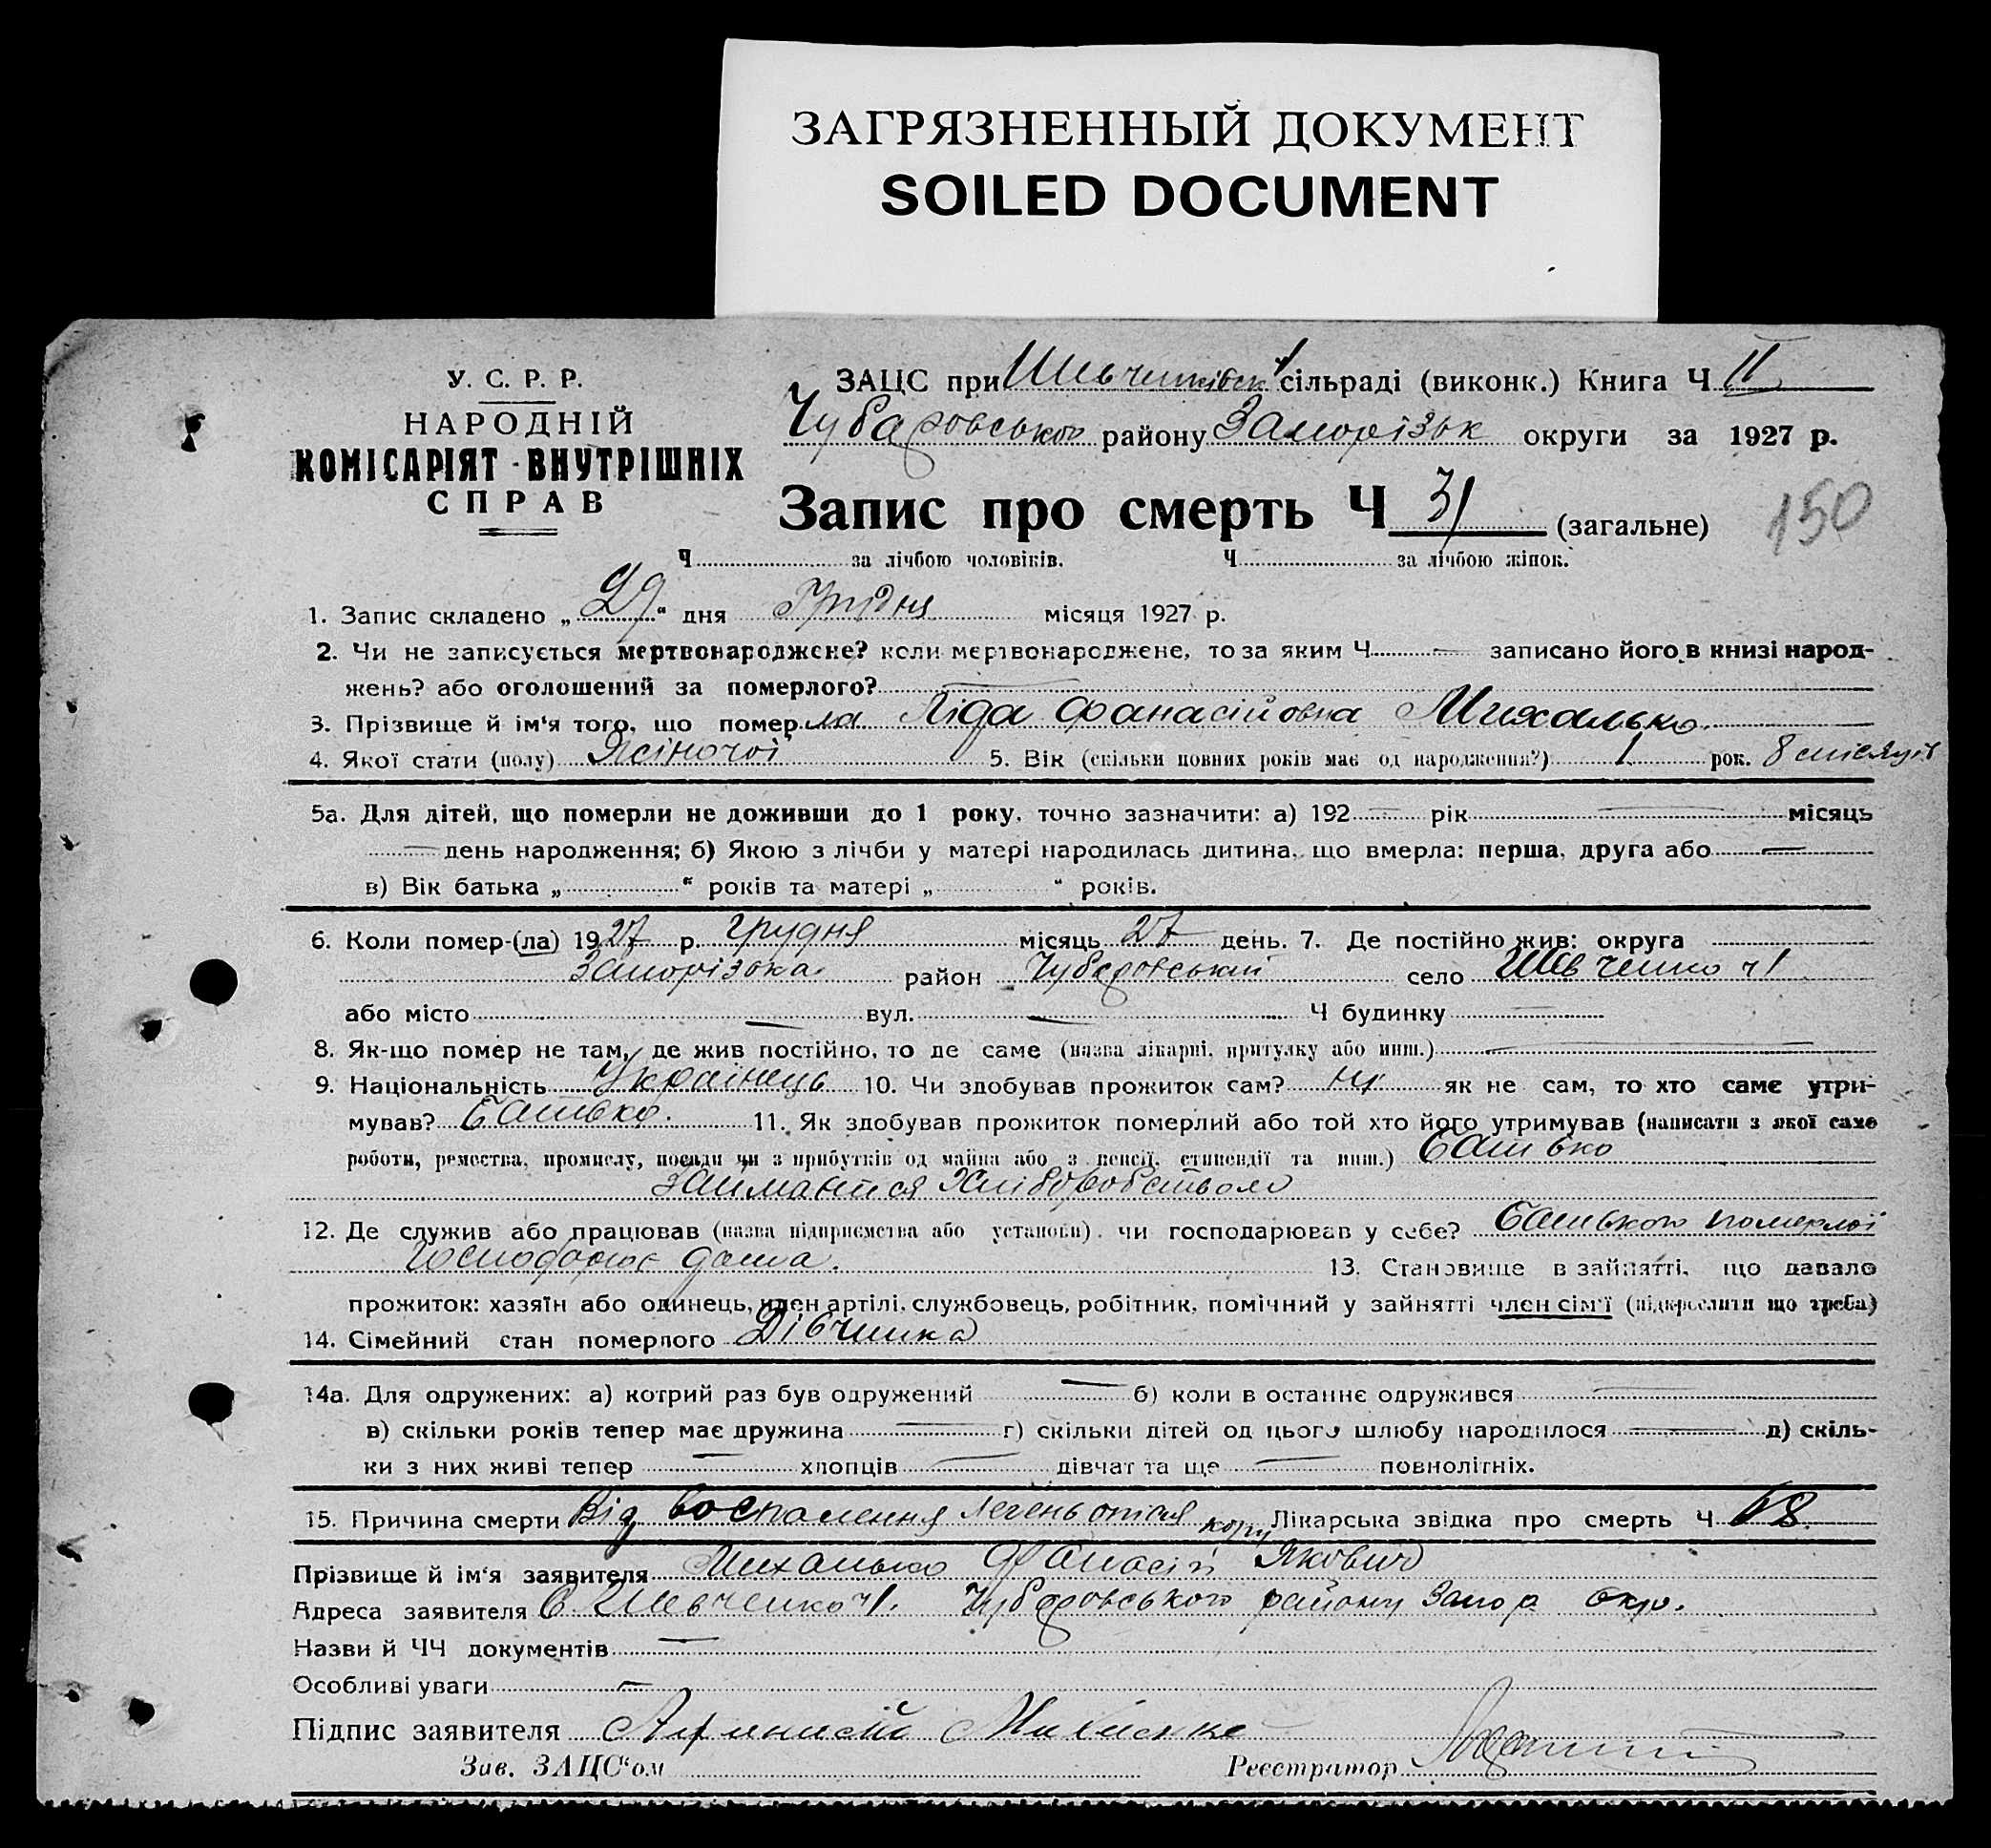 ЗАГРЯЗНЕННЫЙ ДОКУМЕНТ
SOILED DOCUMENT
У. С. Р. Р.
НАРОДНІЙ
КОМІСАРІЯТ ВНУТРІШНІХ
СПРАВ
ЗАЦС при Шевченківськ сільраді (виконк.) Книга Ч II
Чубаровського району Запорізьк округи за 1927 р.
Запис про смерть Ч 31 (загальне)
150
Ч за лічбою чоловіків. Ч за лічбою жінок.
1. Запис складено „29“ дня Грудня місяця 1927 р.
2. Чи не записується мертвонароджене? коли мертвонароджене, то за яким Ч — записано його в книзі народ-
жень? або оголошений за померлого? —
3. Прізвище й ім‘я того, що помер ла Ліда Фанасійовна Михалько
4. Якої статі (полу) Жіночої 5. Вік (скільки повних років має од народження?) 1 рок. 8 місяців
5а. Для дітей, що померли не доживши до 1 року, точно зазначити: а) 192 — рік — місяць
— день народження; б) Якою з лічби у матері народилась дитина, що вмерла: перша, друга або —
в) Вік батька „ “ років та матері „ “ років.
6. Коли помер-(ла) 1927 р. грудня місяць 27 день. 7. Де постійно жив: округа
Запорізька район Чубаровський село Шевченко ч1
або місто — вул. — Ч будинку —
8. Як-що помер не там, де жив постійно, то де саме (назва лікарні, притулку або инш.) —
9. Національність Українець 10. Чи здобував прожиток сам? ні як не сам, то хто саме утри-
мував? батько. 11. Як здобував прожиток померлий або той хто його утримував (написати з якої саме
роботи, ремества, промислу, посади чи з прибутків од майна або з пенсії, стипендії та инш.) батько
займається хліборобством
12. Де служив або працював (назва підприємства або установи), чи господарював у себе? батько померлої
господарює дома. 13. Становище в зайнятті, що давало
прожиток: хазяїн або одинець, член артілі, службовець, робітник, помічний у зайнятті член сім‘ї (підкреслити що треба)
14. Сімейний стан померлого Дівчинка
14а. Для одружених: а) котрий раз був одружений — б) коли в останнє одружився —
в) скільки років тепер має дружина — г) скільки дітей од цього шлюбу народилося — д) скіль-
ки з них живі тепер — хлопців — дівчат та ще — повнолітніх.
15. Причина смерти Від воспалення легень опісля кору Лікарська звідка про смерть Ч
Прізвище й ім‘я заявителя Михалько Фанасій Якович
Адреса заявителя С. Шевченко ч1. Чубаровського району Запор окр.
Назви й ЧЧ документів —
Особливі уваги —
Підпис заявителя
Зав. ЗАЦС‘ом Реєстратор